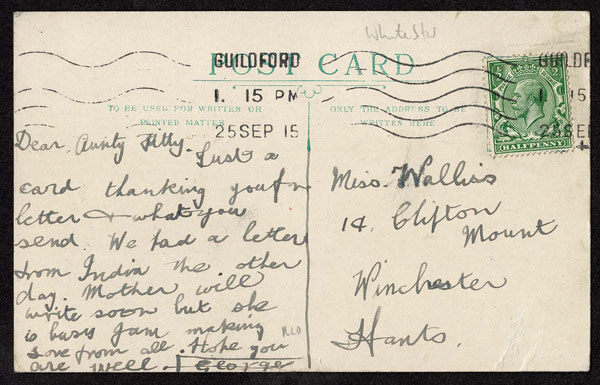 White Star
GUILDFORD
POST CARD
1. 15 PM
25 SEP 15
TO BE USED FOR WRITTEN OR
PRINTED MATTER
ONLY THE ADDRESS TO BE
WRITTEN HERE
GUILDF
1 15
25 SEP
½ 2
HALFPENNY
Dear Aunty Kitty. Just a
card thanking you for
letter & what you
send. We had a letter
from India the other
day. Mother will
write soon but she
is busy Jam making
Love from all. Hope you
are well. George
Miss. Walliss
14. Clifton
Mount
Winchester
Hants.